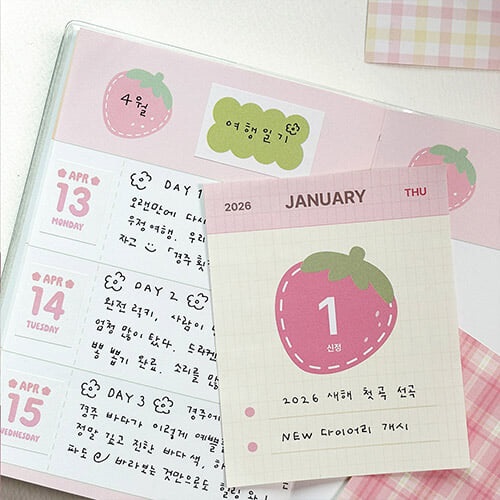 4월
여행일기
APR
13
MONDAY
DAY 1
오랜만에 다시
우정여행. 우리
자고 「경주 횟
APR
14
TUESDAY
DAY 2
완전 럭키, 사람이
엄청 많이 탔다. 드라켄
뽕 뽑기 완료. 소리를 많
APR
15
WEDNESDAY
DAY 3 경주에
경주 바다가 이렇게 예쁠
정말 깊고 진한 바다색, 하
파도 바라보는 것만으로도 힐링
2026 JANUARY THU
1
신정
2026 새해 첫곡 선곡
NEW 다이어리 개시